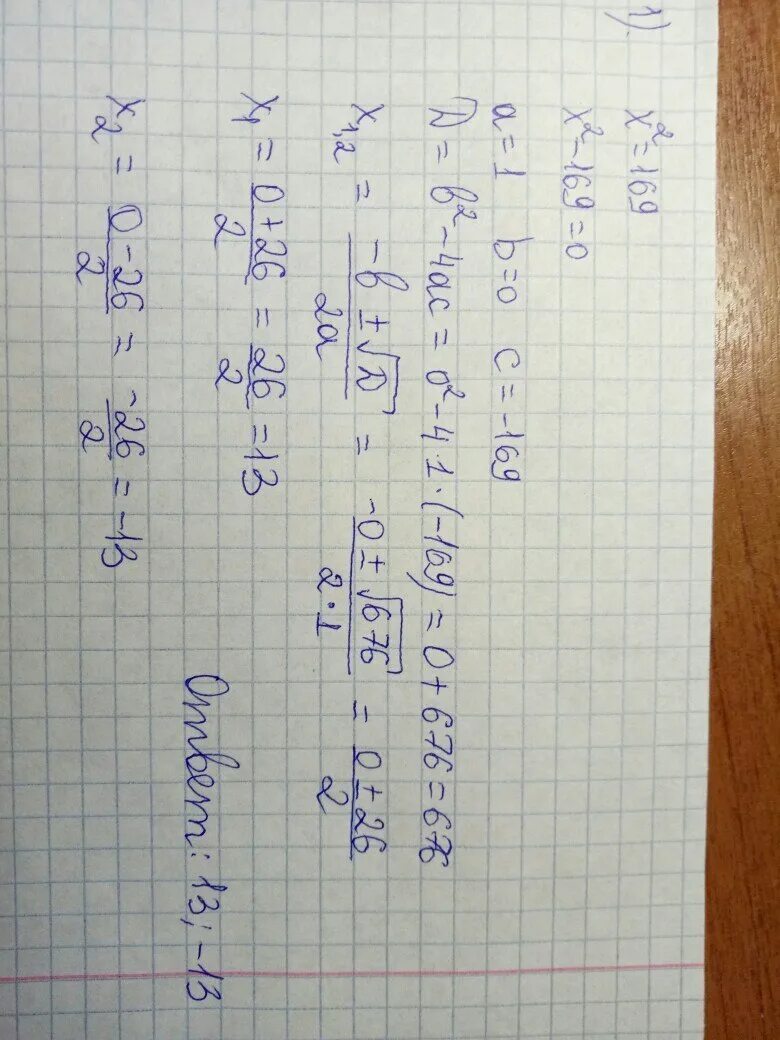 1)
x² = 169
x² - 169 = 0
a = 1 b = 0 c = -169
D = b² - 4ac = 0² - 4·1·(-169) = 0 + 676 = 676
x₁,₂ = (-b ± √D)/2a = (-0 ± √676)/(2·1) = (0 ± 26)/2
x₁ = (0 + 26)/2 = 26/2 = 13
x₂ = (0 - 26)/2 = -26/2 = -13
Ответ: 13; -13